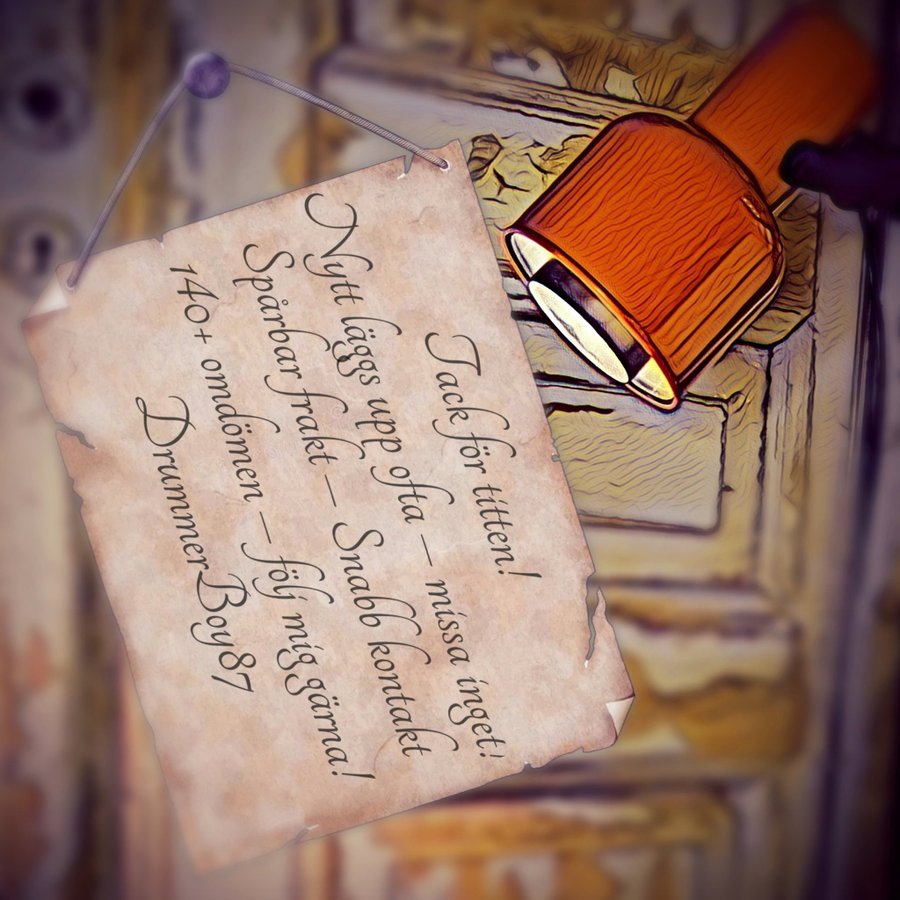 Tack för titten!
Nytt läggs upp ofta – missa inget!
Spårbar frakt – Snabb kontakt
140+ omdömen – följ mig gärna!
DrummerBoy87